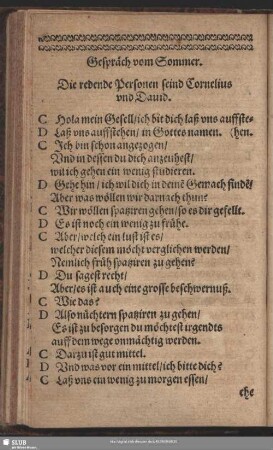 Gespräch vom Sommer.
Die redende Personen seind Cornelius
vnd Dauid.
C Hola mein Gesell/ich bit dich laß vns auffste-
D Laß vns auffstehen/ in Gottes namen. (hen.
C Ich bin schon angezogen/
Vnd in dessen du dich anzeuhest/
wil ich gehen ein wenig studieren.
D Gehe hin/ ich wil dich in deinē Gemach findē/
Aber was wöllen wir darnach thun?
C Wir wöllen spatziren gehen/ so es dir gefellt.
D Es ist noch ein wenig zu frühe.
C Aber/ welch ein lust ist es/
welcher diesem möcht verglichen werden/
Nemlich früh spatziren zu gehen?
D Du sagest recht/
Aber/ es ist auch eine grosse beschwernuß.
C Wie das?
D Also nüchtern spatziren zu gehen/
Es ist zu besorgen du möchtest irgendts
auff dem wege onmächtig werden.
C Darzu ist gut mittel.
D Vnd was vor ein mittel/ ich bitte dich?
C Laß vns ein wenig zu morgen essen/
ehe
SLUB